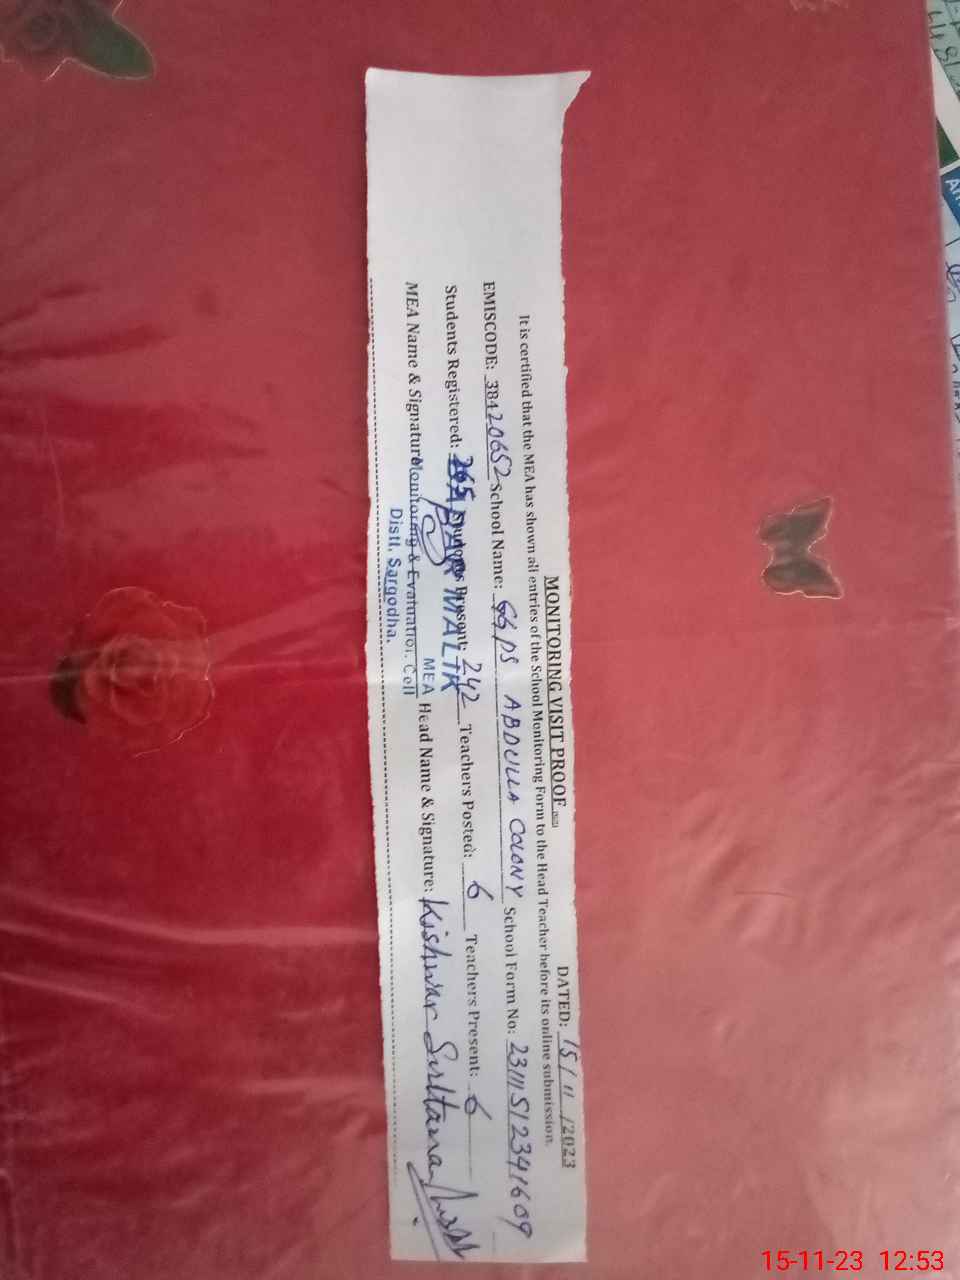 MONITORING VISIT PROOF
DATED: 15/11/2023
It is certified that the MEA has shown all entries of the School Monitoring Form to the Head Teacher before its online submission.
EMISCODE: 38420652 School Name: GGPS ABDULLA COLONY School Form No: 23111512341609
Students Registered: 265 Students Present: 242 Teachers Posted: 6 Teachers Present: 6
MALIK
MEA Name & Signature Head Name & Signature: Kishwar Sultana
MEA
Monitoring & Evaluation Cell
Distt. Sargodha.
15-11-23 12:53